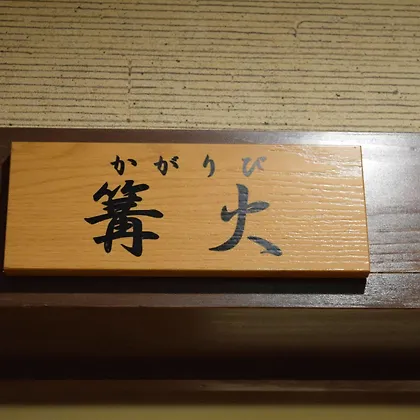 かがりび
篝火